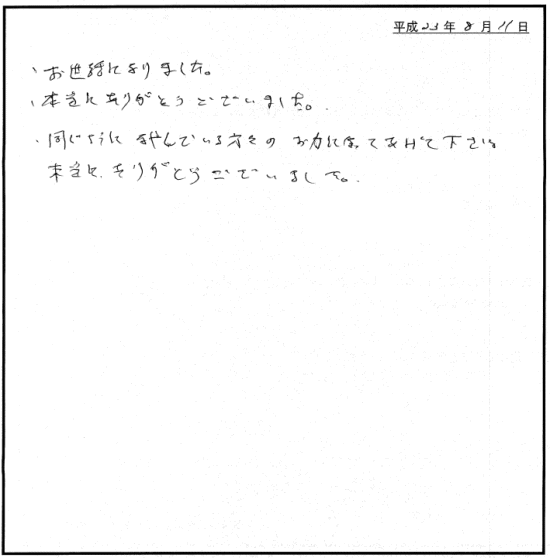 平成23年8月11日
、お世話になりました。
、本当にありがとうございました。
、同じように悩んでいる方々のお力になってあげて下さい
本当に、ありがとうございました。